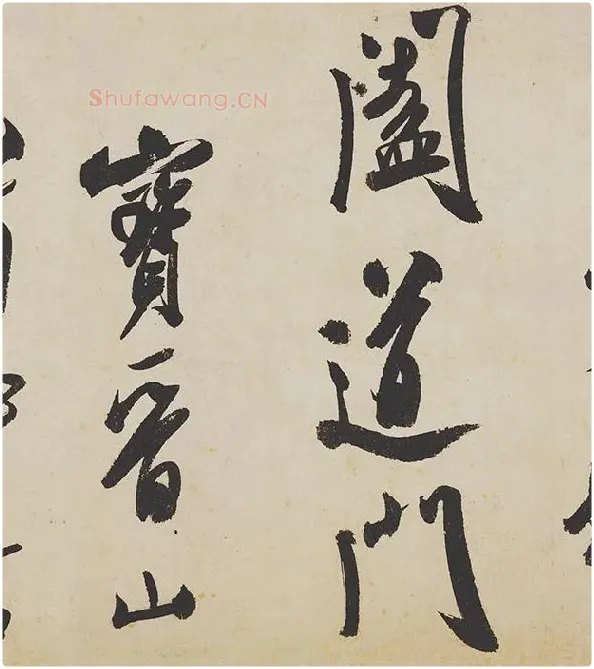 Shufawang.CN
闔道門
寶晉山